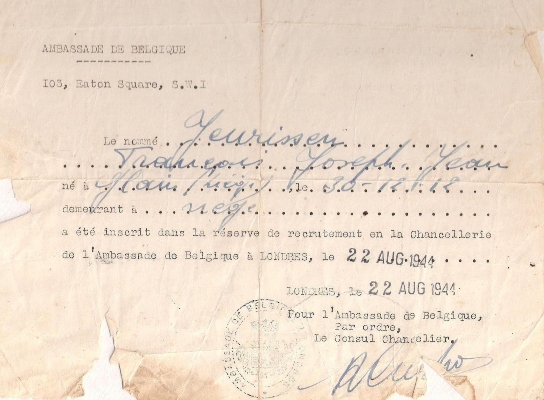 AMBASSADE DE BELGIQUE
103, Eaton Square, S.W.I
Le nommé Jeurissen
François Joseph Jean
né à Glain (Liège) le 30-12-12
demeurant à
a été inscrit dans la réserve de recrutement en la Chancellerie
de l'Ambassade de Belgique à LONDRES, le 22 AUG 1944
LONDRES, le 22 AUG 1944
Pour l'Ambassade de Belgique,
Par ordre,
Le Consul Chancelier.